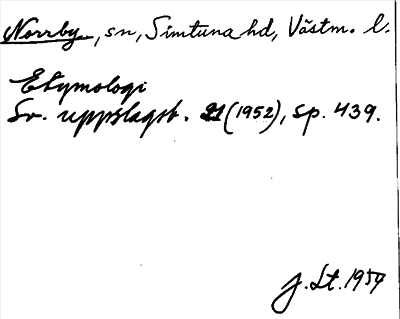 Norrby, sn, Simtuna hd, Västm. l.
Etymologi
Sv. uppslagsb. 21 (1952), sp. 439.
J. St. 1959